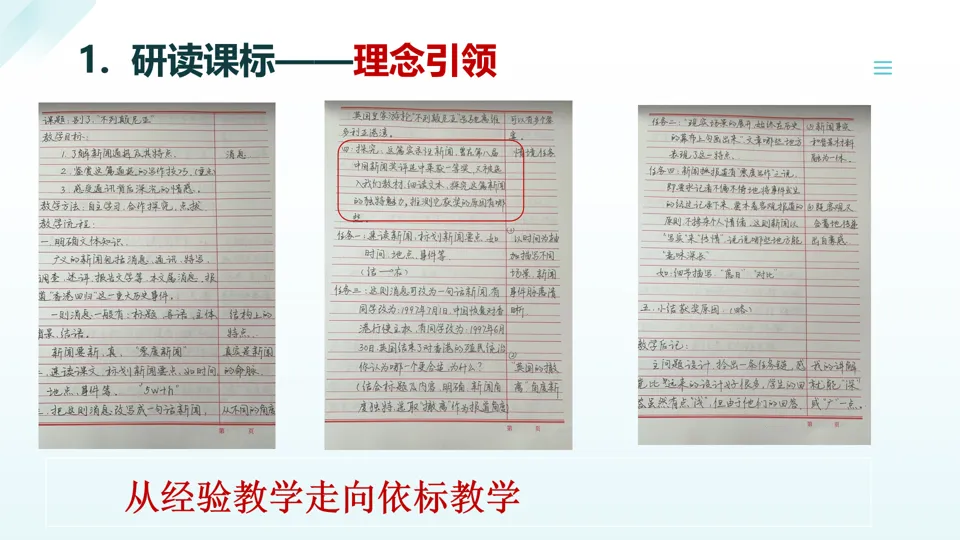 1. 研读课标——理念引领
课题：别了，“不列颠尼亚”
教学目标：
1.了解新闻通讯及其特点。
消息
2.鉴赏这篇通讯的写作技巧。(重点)
3.感受通讯背后深沉的情感。
教学方法：自主学习、合作探究、点拨
教学流程：
一.明确文体知识。
广义的新闻包括消息、通讯、特写、
调查、述评、报告文学等。本文属消息，报
道“香港回归”这一重大历史事件。
一则消息一般有：标题、导语、主体、
结构上的
背景、结语。
特点.
新闻要新、真，“零度新闻”
真实是新闻
二.速读课文，标划新闻要点，如时间、
的命脉.
地点、事件等。“5w+h”
三.把此则消息改写成一句话新闻，
从不同的角度
英国皇家游轮“不列颠尼亚”号驶离维
可以有多个答
多利亚港湾。
案.
四.探究：这篇实录性新闻，曾在第八届
情境任务
中国新闻奖评选中荣获一等奖，又被选
入我们教材，细读文本，探究这篇新闻
的独特魅力，推测它获奖的原因有哪
些。
任务一：速读新闻，标划新闻要点，如
①以时间为轴
时间、地点、事件等.
如描写不同
(估一右)
场景，新闻
任务二：这则消息可改为一句话新闻，有
事件脉络清
同学改为：1997年7月1日，中国恢复对香
晰。
港行使主权，有同学改为：1997年6月
30日，英国结束了对香港的殖民统治
②
你认为哪一个更合适，为什么？
“英国的撤
(结合标题及内容，明确：新闻角
离”角度新
度独特，选取“撤离”作为报道角度)
任务三：“现实场景的展开，始终在历史
③新闻事实
的幕布上勾画出来”，文章哪些地方
和背景材料
表现了这一特点。
融为一体。
任务四：新闻批报道有“零度写作”之说，
即要求记者不偏不倚地将事件发生
的经过记录下来，要本着客观报道的
④既客观又
原则，不掺杂个人情感，这则新闻以
含蓄地传达
“写实”来“传情”，说说哪些地方能
出自豪感.
“意味深长”
如：细节描写、“落日”“对比”
五.小结获奖原因：(略)
教学后记：
主问题设计，拎出一条任务链，感
我的讲解
觉比原来的设计好很多，学生的回
就能“深”
答虽然有点“浅”，但由于他们的回答，
或“广”一点。
从经验教学走向依标教学